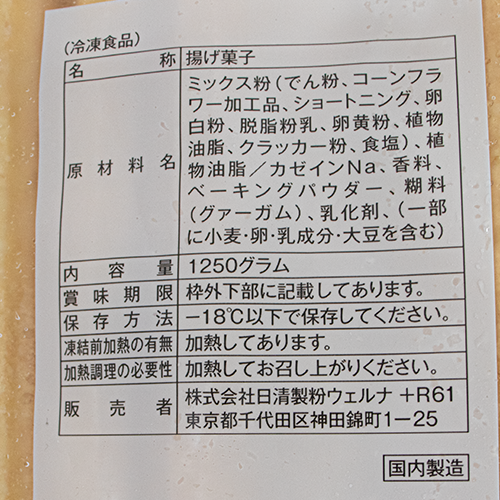 (冷凍食品)
名 称 揚げ菓子
原材料名 ミックス粉(でん粉、コーンフラ
ワー加工品、ショートニング、卵
白粉、脱脂粉乳、卵黄粉、植物
油脂、クラッカー粉、食塩)、植
物油脂/カゼインNa、香料、
ベーキングパウダー、糊料
(グァーガム)、乳化剤、(一部
に小麦・卵・乳成分・大豆を含む)
内容量 1250グラム
賞味期限 枠外下部に記載してあります。
保存方法 −18℃以下で保存してください。
凍結前加熱の有無 加熱してあります。
加熱調理の必要性 加熱してお召し上がりください。
販売者 株式会社日清製粉ウェルナ +R61
東京都千代田区神田錦町1−25
国内製造